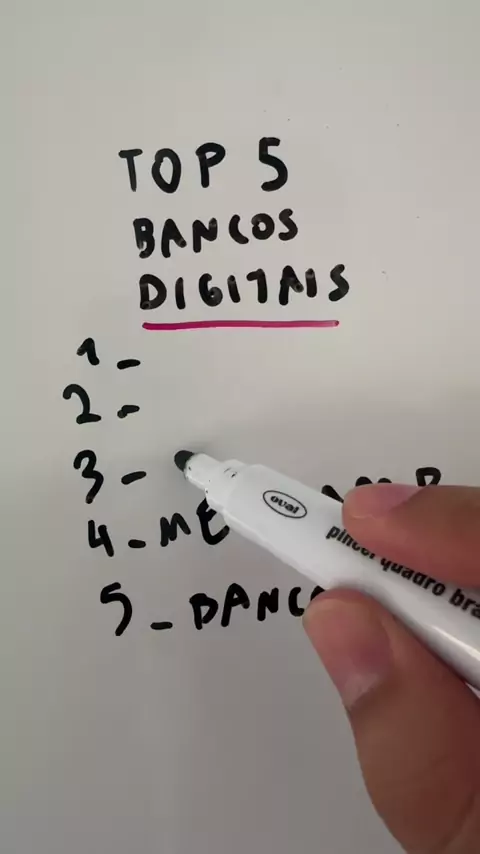 TOP 5
BANCOS
DIGITAIS
1-
2-
3-
4-
5-
oval
pincel quadro